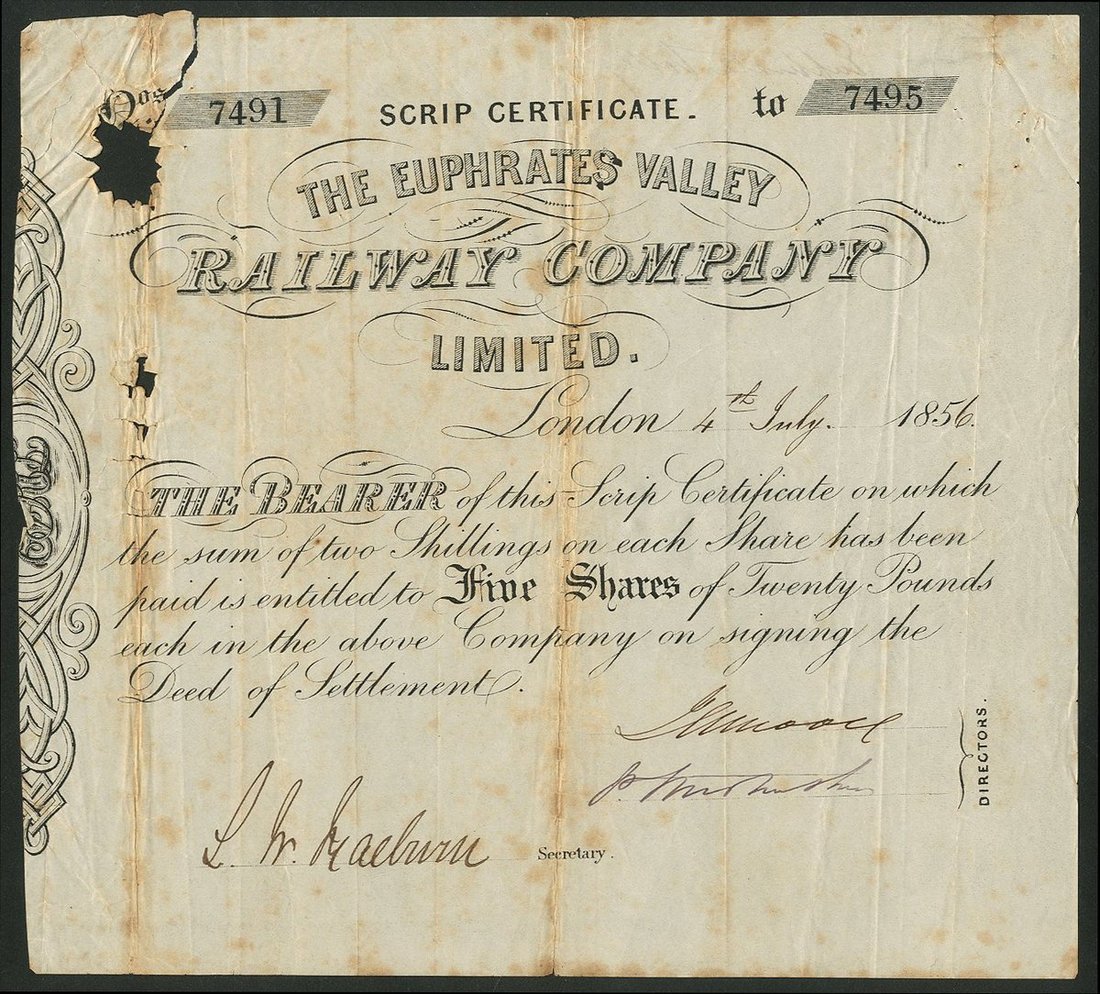 Nos 7491 SCRIP CERTIFICATE. to 7495
THE EUPHRATES VALLEY
RAILWAY COMPANY
LIMITED.
London 4th July. 1856.
THE BEARER of this Scrip Certificate on which
the sum of two Shillings on each Share has been
paid is entitled to Five Shares of Twenty Pounds
each in the above Company on signing the
Deed of Settlement.
DIRECTORS.
Secretary.